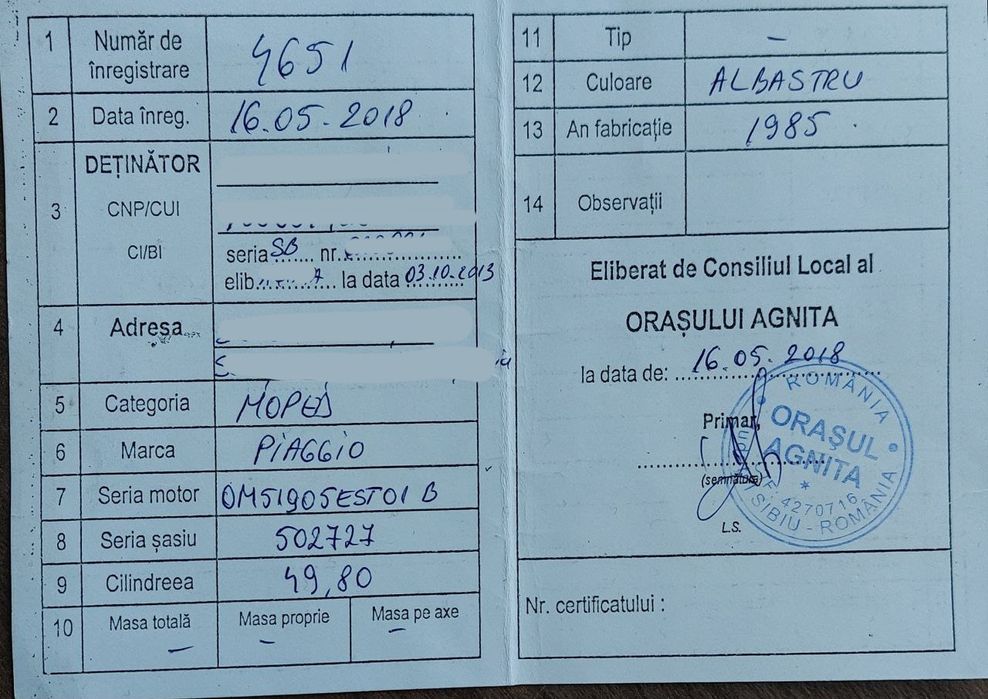 1 Număr de înregistrare 4651
2 Data înreg. 16.05.2018
3 DEȚINĂTOR
CNP/CUI
CI/BI seria SB nr.
elib. la data 03.10.2013
4 Adresa
5 Categoria MOPED
6 Marca PIAGGIO
7 Seria motor OM51905EST01 B
8 Seria șasiu 502727
9 Cilindreea 49,80
10 Masa totală - Masa proprie - Masa pe axe -
11 Tip -
12 Culoare ALBASTRU
13 An fabricație 1985
14 Observații
Eliberat de Consiliul Local al
ORAȘULUI AGNITA
la data de: 16.05.2018
Primar,
(semnătura)
L.S.
ROMÂNIA
ORAȘUL
AGNITA
4270716
SIBIU - ROMÂNIA
Nr. certificatului :